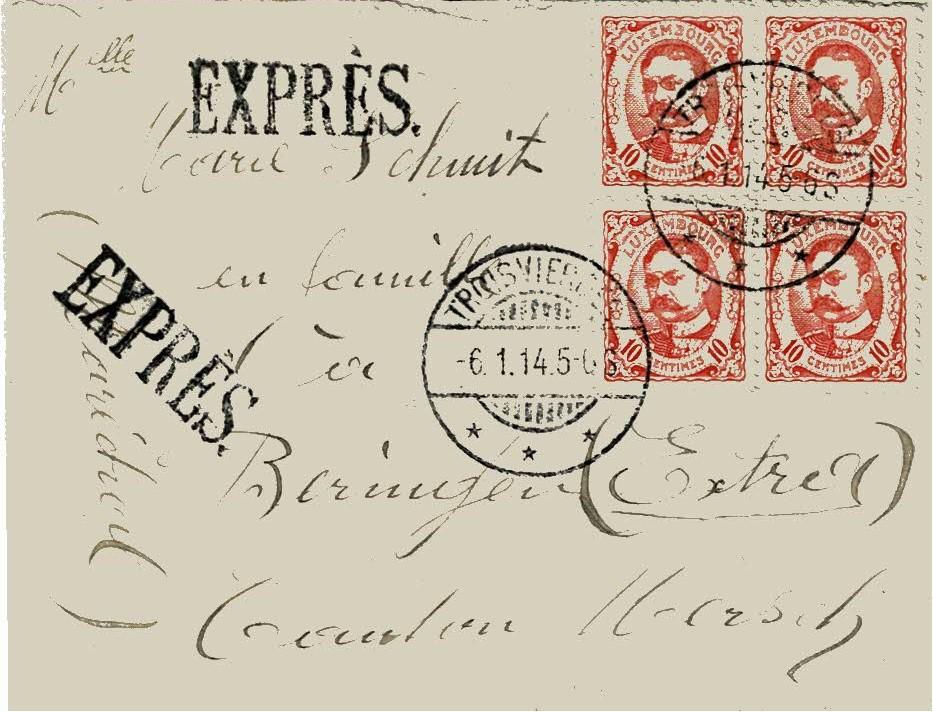 Mlle
EXPRÈS.
Marie Schmit
en famille
à
Beringen (Extra)
Canton Mersch
EXPRÈS.
LUXEMBOURG
10 CENTIMES 10
LUXEMBOURG
10 CENTIMES 10
LUXEMBOURG
10 CENTIMES 10
LUXEMBOURG
10 CENTIMES 10
TROISVIERGES
-6.1.14.5-6S
TROISVIERGES
-6.1.14.5-6S